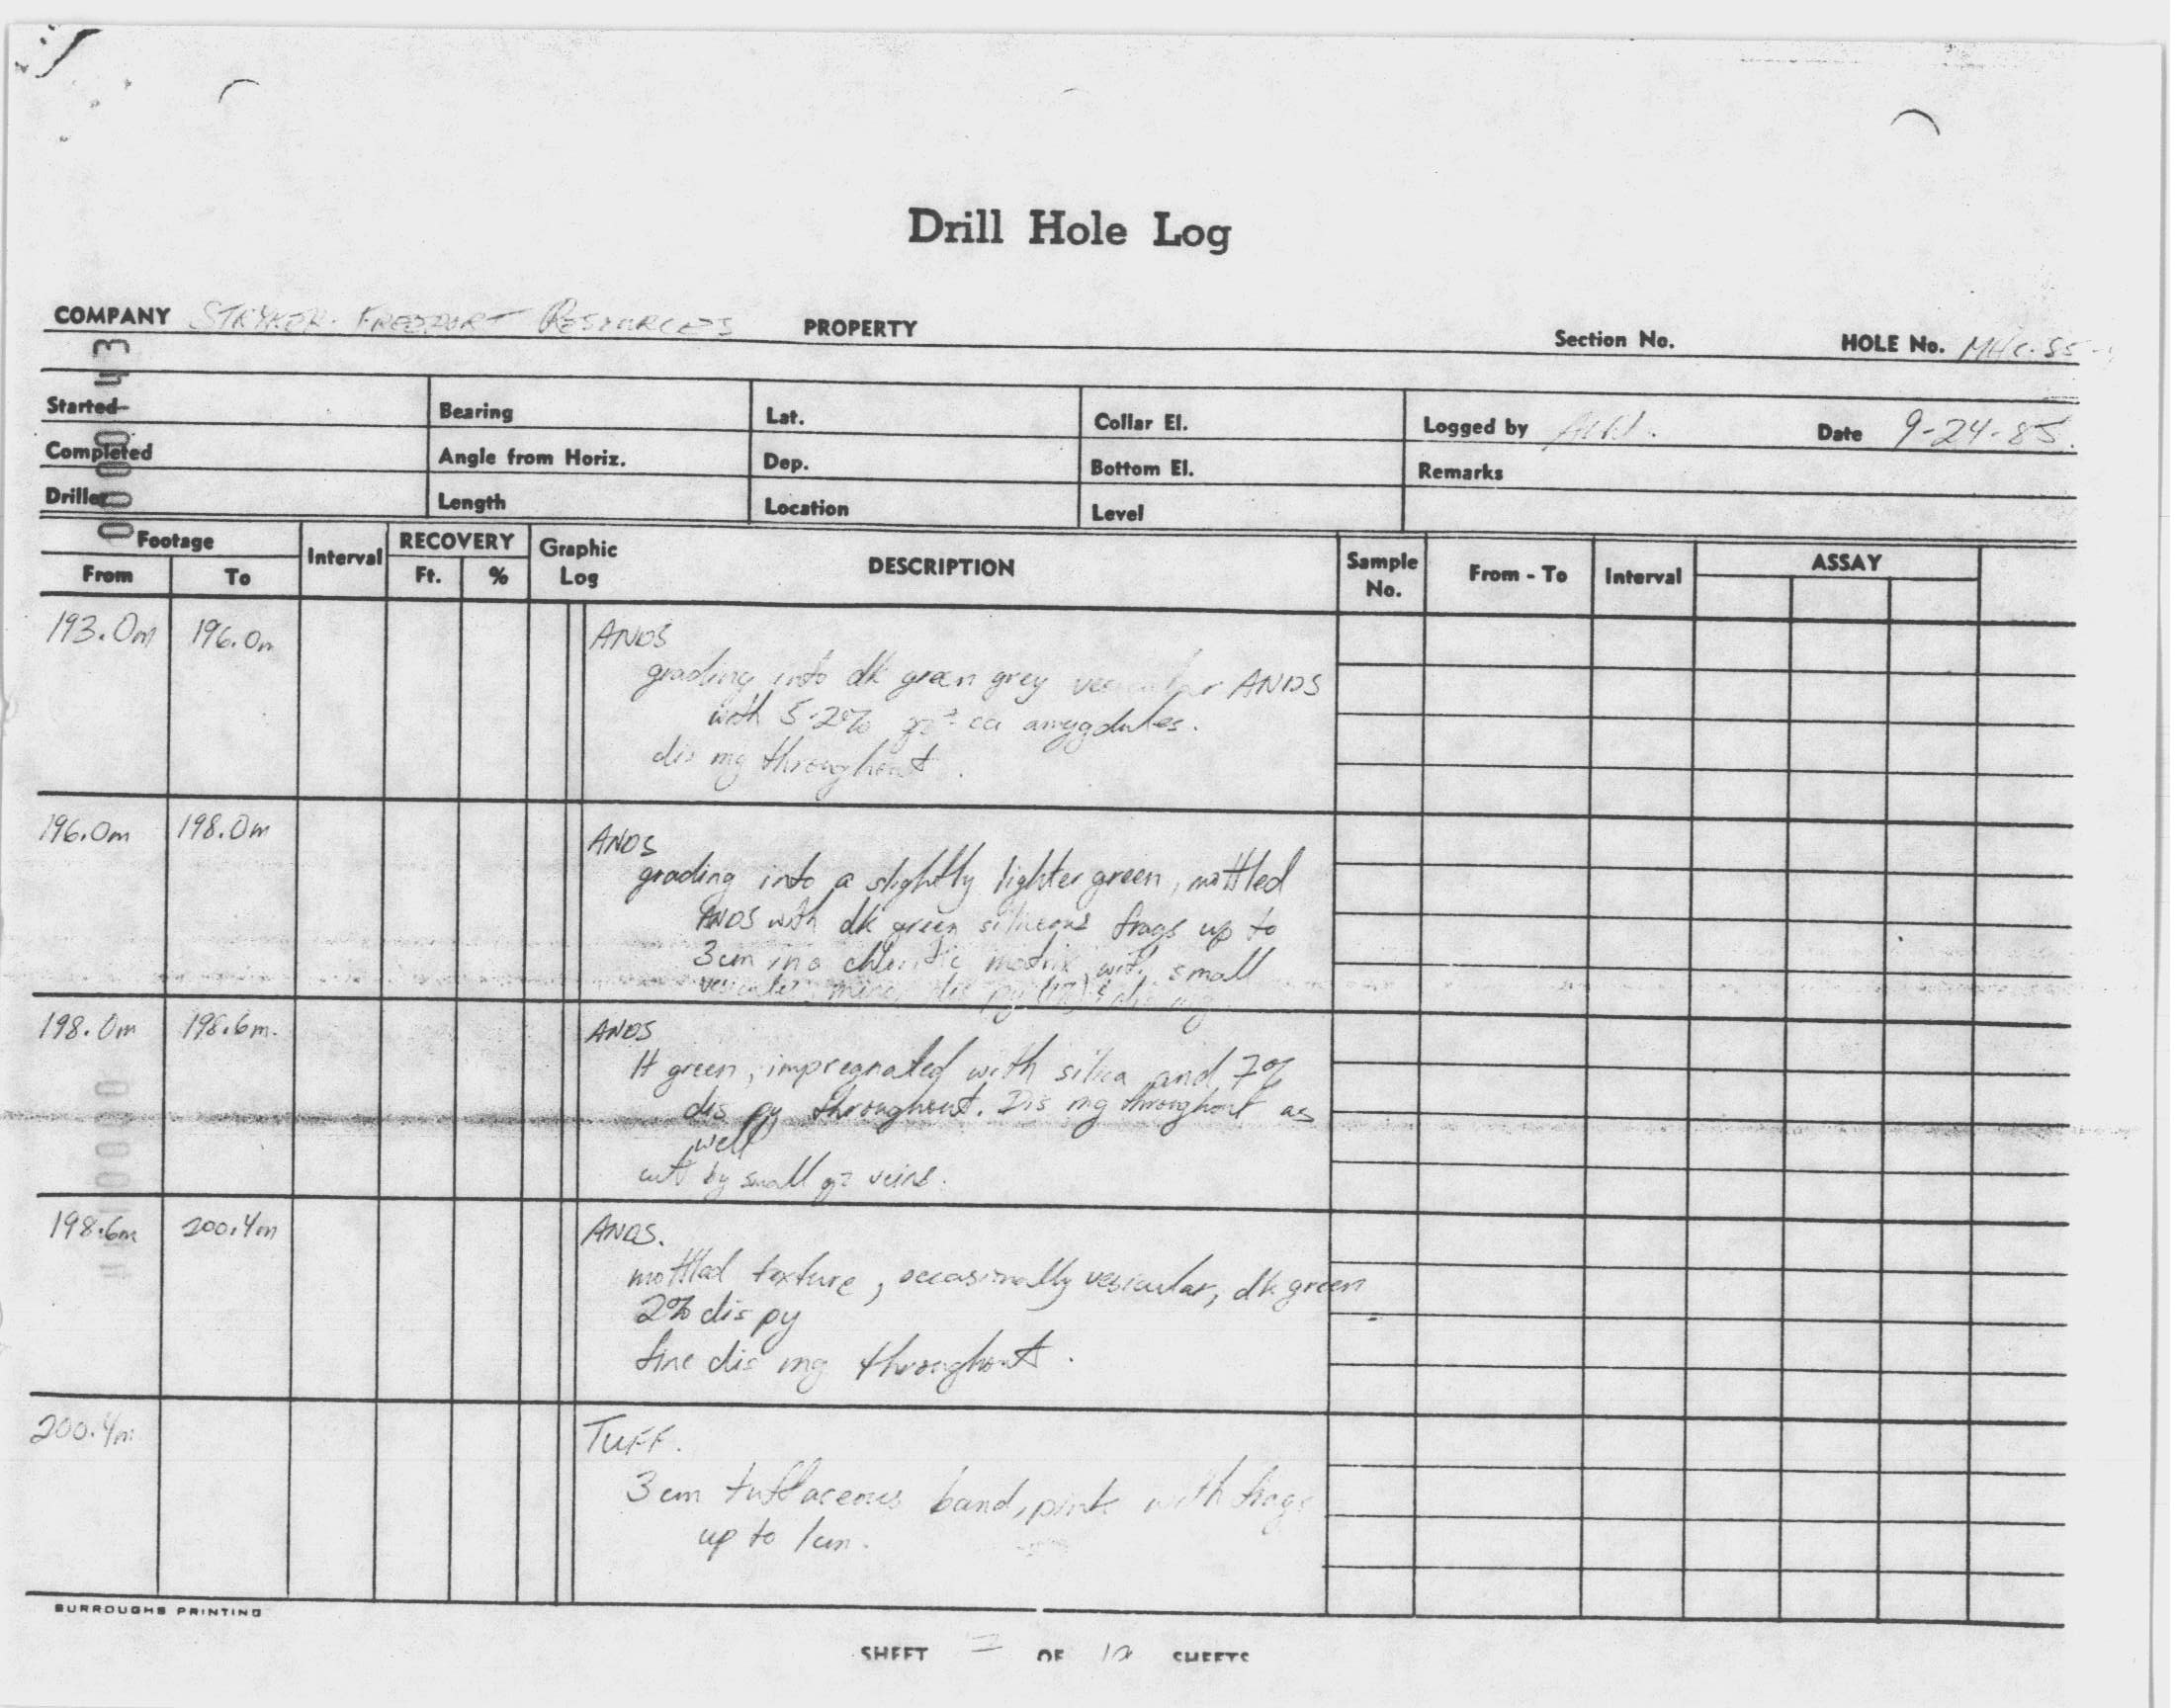 Drill Hole Log
COMPANY STRYKER - FREEPORT RESOURCES PROPERTY Section No. HOLE No. MHC-85-
Started Bearing Lat. Collar El. Logged by Date 9-24-85.
Completed Angle from Horiz. Dep. Bottom El. Remarks
Driller Length Location Level
Footage Interval RECOVERY Graphic Log DESCRIPTION Sample No. From - To Interval ASSAY
From To Ft. %
193.0m 196.0m ANDS
grading into dk green grey vesicular ANDS
with 5-2% qz ca amygdules.
dis mg throughout.
196.0m 198.0m ANDS
grading into a slightly lighter green, mottled
ANDS with dk green siliceous frags up to
3cm in a chloritic matrix with small
vesicules dis py mg
198.0m 198.6m. ANDS
lt green, impregnated with silica and 7%
dis py throughout. Dis mg throughout as
well
cut by small qz veins.
198.6m 200.4m ANDS.
mottled texture, occasionally vesicular, dk green
2% dis py
fine dis mg throughout.
200.4m TUFF.
3cm tuffaceous band, pink with frags
up to 1cm.
BURROUGHS PRINTING
SHEET OF SHEETS